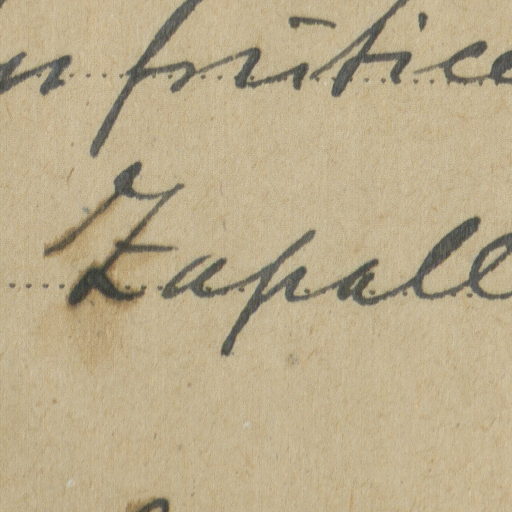 frutice
Zapall